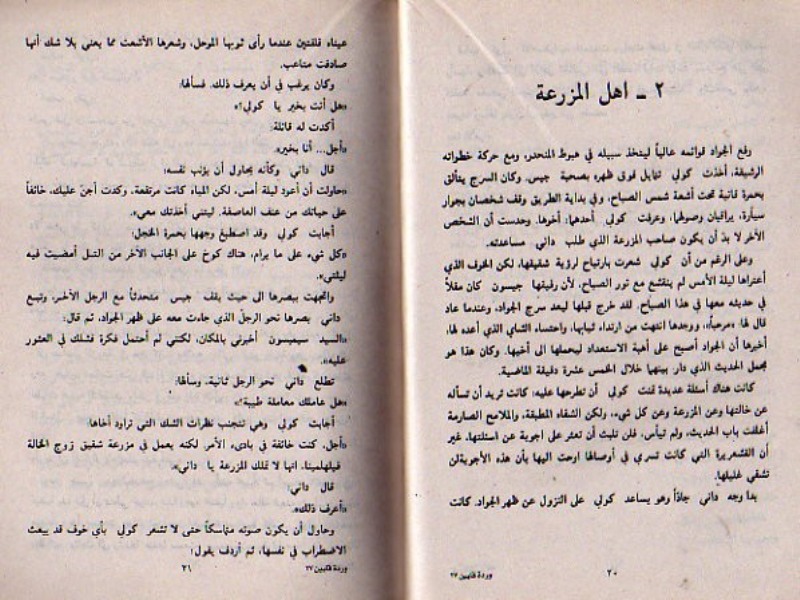 ٢ ـ اهل المزرعة
رفع الجواد قوائمه عالياً ليتخذ سبيله في هبوط المنحدر، ومع حركة خطواته
الرشيقة، أخذت كولي تتمايل فوق ظهره بصحبة جيس. وكان السرج يتألق
بحمرة قانية تحت أشعة شمس الصباح، وفي بداية الطريق وقف شخصان بجوار
سيارة، يراقبان وصولهما، وعرفت كولي أحدهما: أخوها. وحدست أن الشخص
الآخر لا بد أن يكون صاحب المزرعة الذي طلب داني مساعدته.
وعلى الرغم من أن كولي شعرت بارتياح لرؤية شقيقها، لكن الخوف الذي
أعتراها ليلة الأمس لم ينقشع مع نور الصباح، لأن رفيقها جيسون كان مقلاً
في حديثه معها في هذا الصباح. لقد خرج قبلها ليعد سرج الجواد، وعندما عاد
قال لها «مرحباً»، ووجدها انتهت من ارتداء ثيابها، واحتساء الشاي الذي أعده لها،
أخبرها أن الجواد أصبح على أهبة الاستعداد ليحملها الى أخيها. وكان هذا هو
مجمل الحديث الذي دار بينهما خلال الخمس عشرة دقيقة الماضية.
كانت هناك أسئلة عديدة تمنت كولي أن تطرحها عليه: كانت تريد أن تسأله
عن خالتها وعن المزرعة وعن كل شيء، ولكن الشفاه المطبقة، والملامح الصارمة
أغلقت باب الحديث، ولم تيأس، فلن تلبث أن تعثر على اجوبة عن اسئلتها. غير
أن القشعريرة التي كانت تسري في أوصالها اوحت اليها بأن هذه الأجوبة لن
تشفي غليلها.
بدا وجه داني جاداً وهو يساعد كولي على النزول عن ظهر الجواد. كانت
٢٠
وردة قايين ٢٧
عيناه قلقتين عندما رأى ثوبها الموحل، وشعرها الأشعث مما يعني بلا شك أنها
صادفت متاعب.
وكان يرغب في أن يعرف ذلك. فسألها:
«هل أنت بخير يا كولي؟»
أكدت له قائلة:
«أجل... أنا بخير».
قال داني وكأنه يحاول أن يؤنب نفسه:
«حاولت أن أعود ليلة أمس، لكن المياه كانت مرتفعة، وكدت أجن عليك، خائفاً
على حياتك من عنف العاصفة. ليتني أخذتك معي».
أجابت كولي وقد اصطبغ وجهها بحمرة الخجل:
«كل شيء على ما يرام، هناك كوخ على الجانب الآخر من التل أمضيت فيه
ليلتي».
واتجهت ببصرها الى حيث يقف جيس متحدثاً مع الرجل الآخر. وتبع
داني بصرها نحو الرجل الذي جاءت معه على ظهر الجواد، ثم قال:
«السيد سيمبسون أخبرني بالمكان، لكنني لم أحتمل فكرة فشلك في العثور
عليه».
تطلع داني نحو الرجل ثانية، وسألها:
«هل عاملك معاملة طيبة؟»
أجابت كولي وهي تتجنب نظرات الشك التي تراود أخاها:
«أجل. كنت خائفة في بادىء الأمر. لكنه يعمل في مزرعة شقيق زوج الخالة
فيلهلمينا. انها لا تملك المزرعة يا داني».
قال داني:
«أعرف ذلك».
وحاول أن يكون صوته متماسكاً حتى لا تشعر كولي بأي خوف قد يبعث
الاضطراب في نفسها، ثم أردف يقول:
٢١
وردة قايين ٢٧